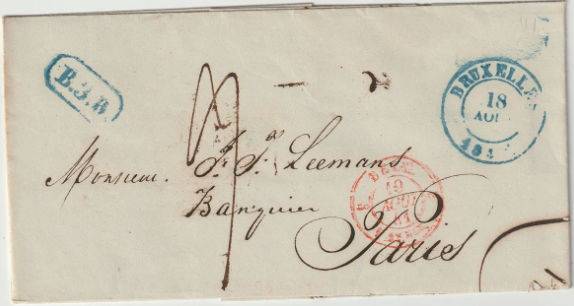 B.3.R
BRUXELLES
18
AOU
184
Monsieur
J. Js Leemans
Banquier
Paris
19